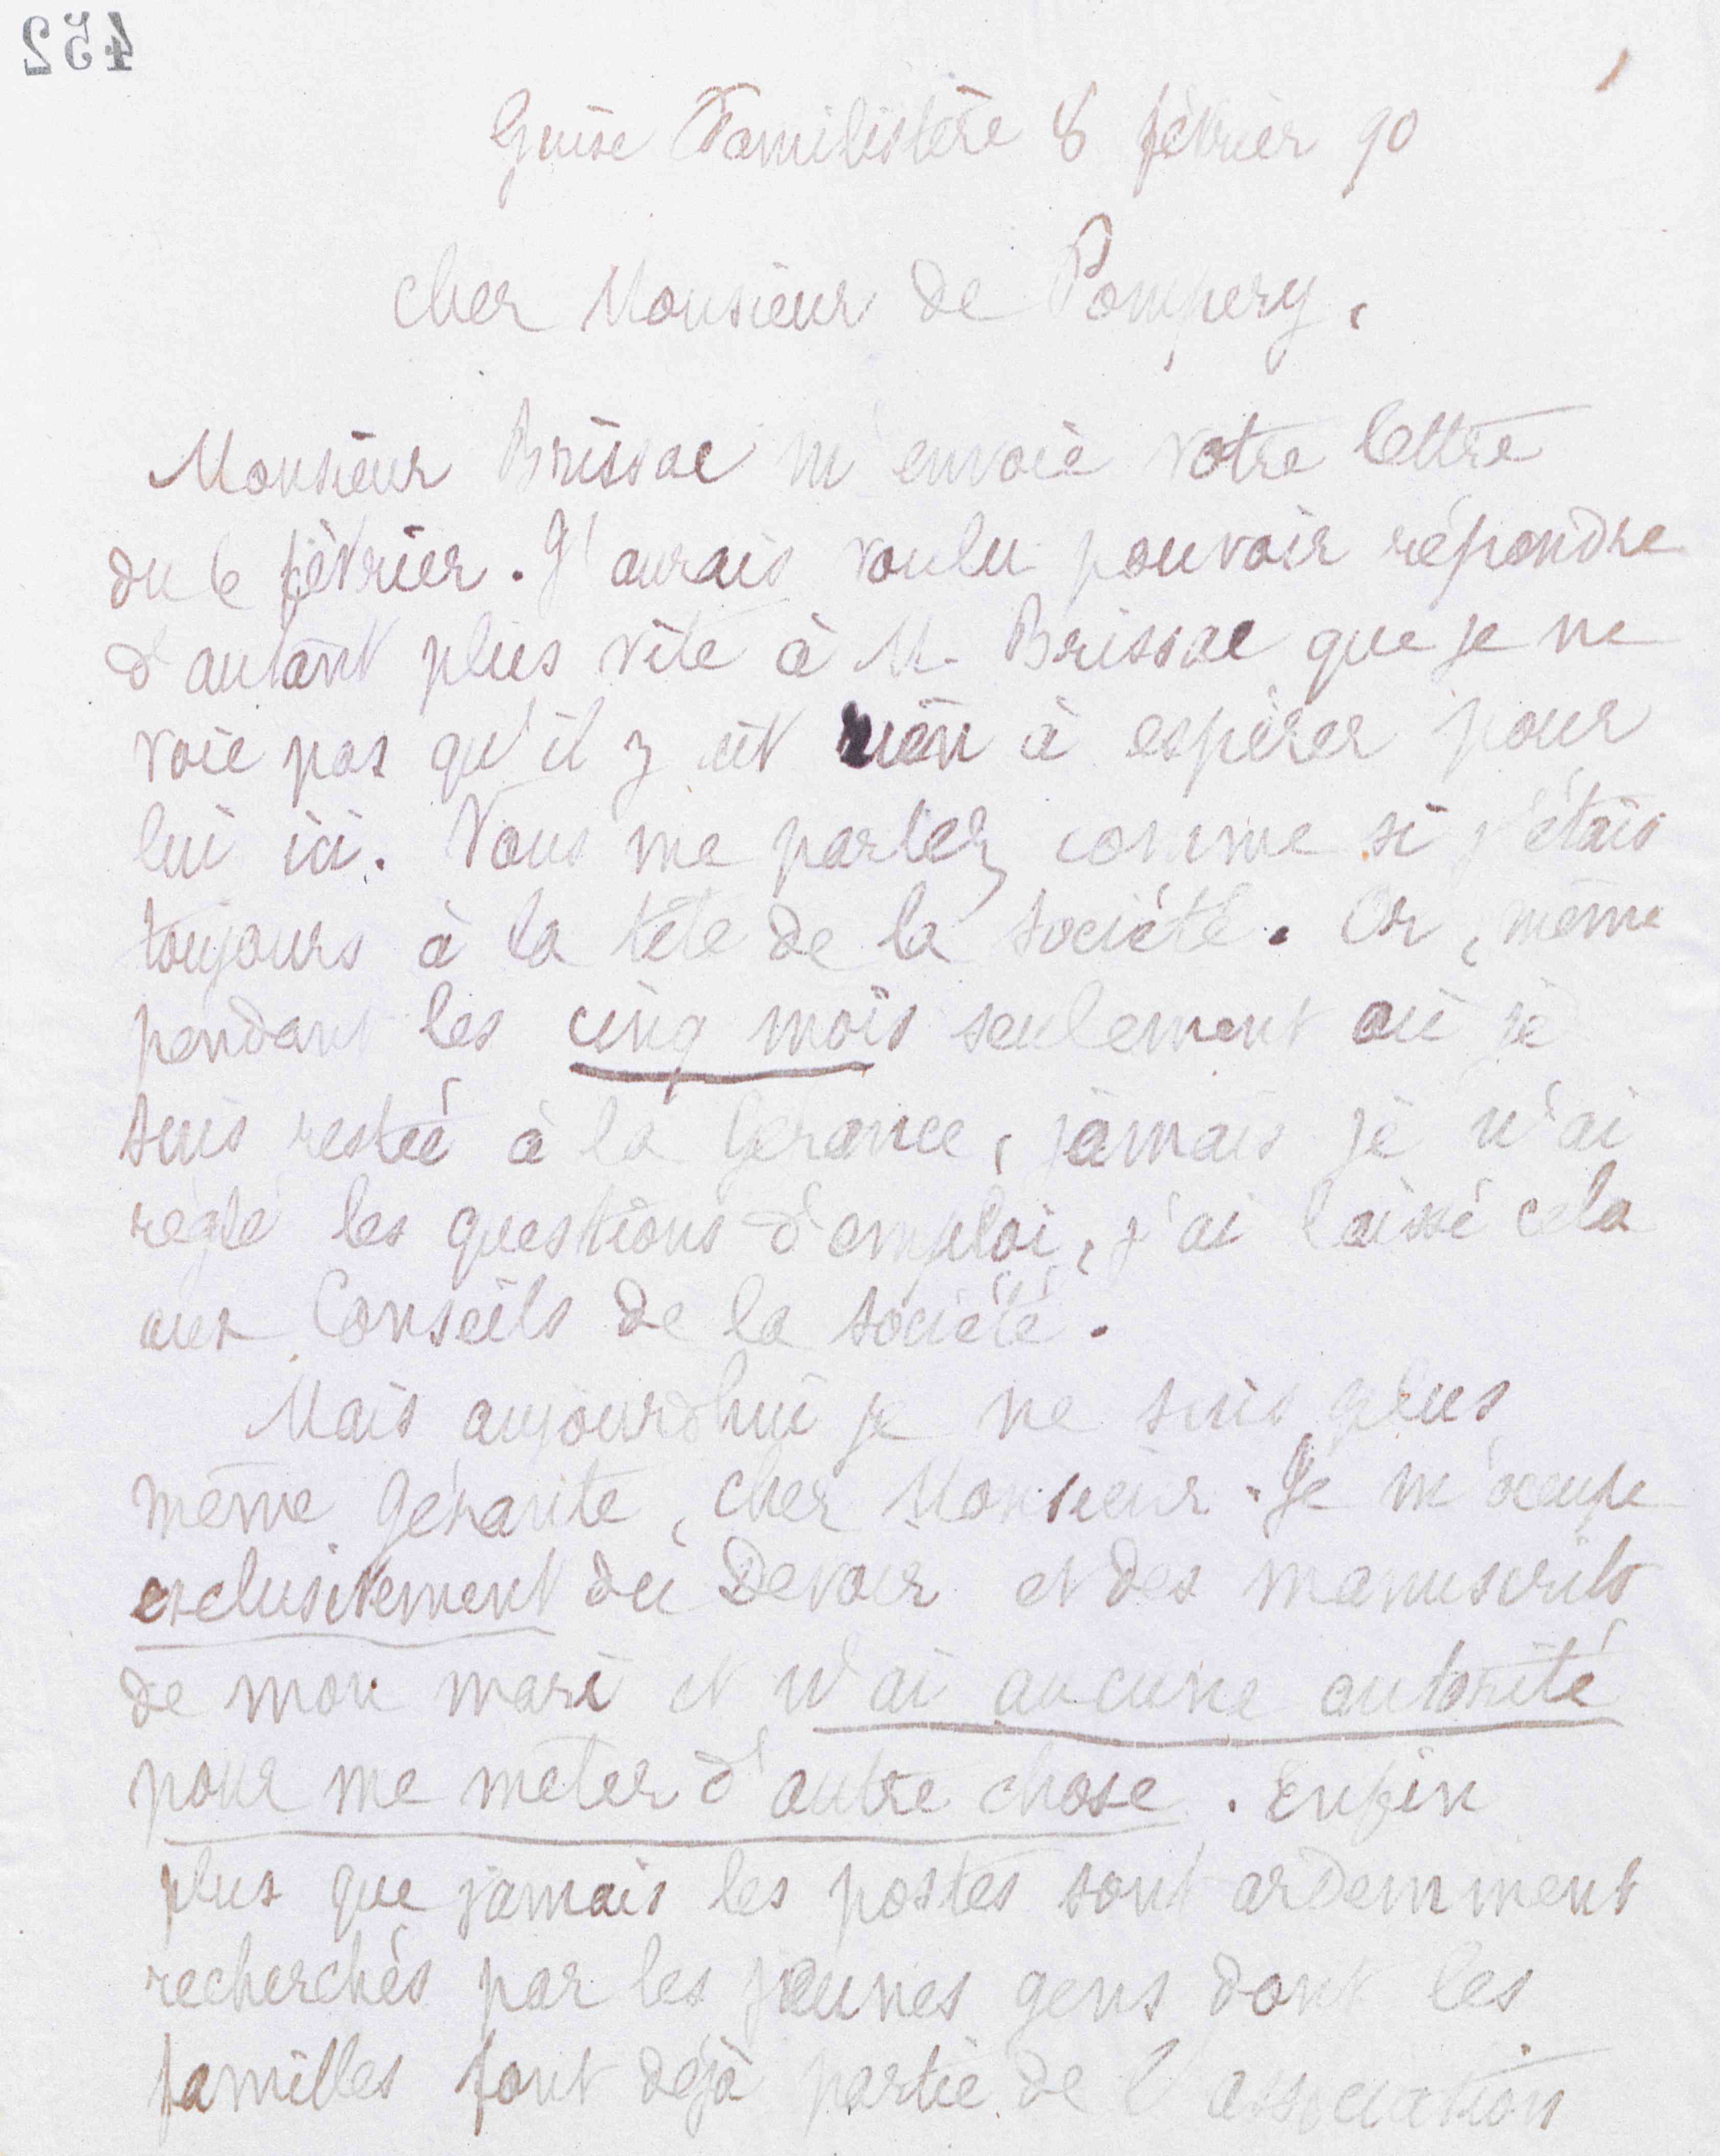 452
Guise Familistère 8 février 90
cher Monsieur de Pompery,
Monsieur Brissac m'envoie votre lettre
du 6 février. J'aurais voulu pouvoir répondre
d'autant plus vite à M. Brissac que je ne
voie pas qu'il y ait rien à espérer pour
lui ici. Vous me parlez comme si j'étais
toujours à la tête de la société. Or, même
pendant les cinq mois seulement où je
suis restée à la Gérance, jamais je n'ai
réglé les questions d'emploi, j'ai laissé cela
aux Conseils de la société.
Mais aujourd'hui je ne suis plus
même gérante, cher Monsieur. Je m'occupe
exclusivement du Devoir et des manuscrits
de mon mari et n'ai aucune autorité
pour me mêler d'autre chose. Enfin
plus que jamais les postes sont ardemment
recherchés par les jeunes gens dont les
familles font déjà partie de l'association